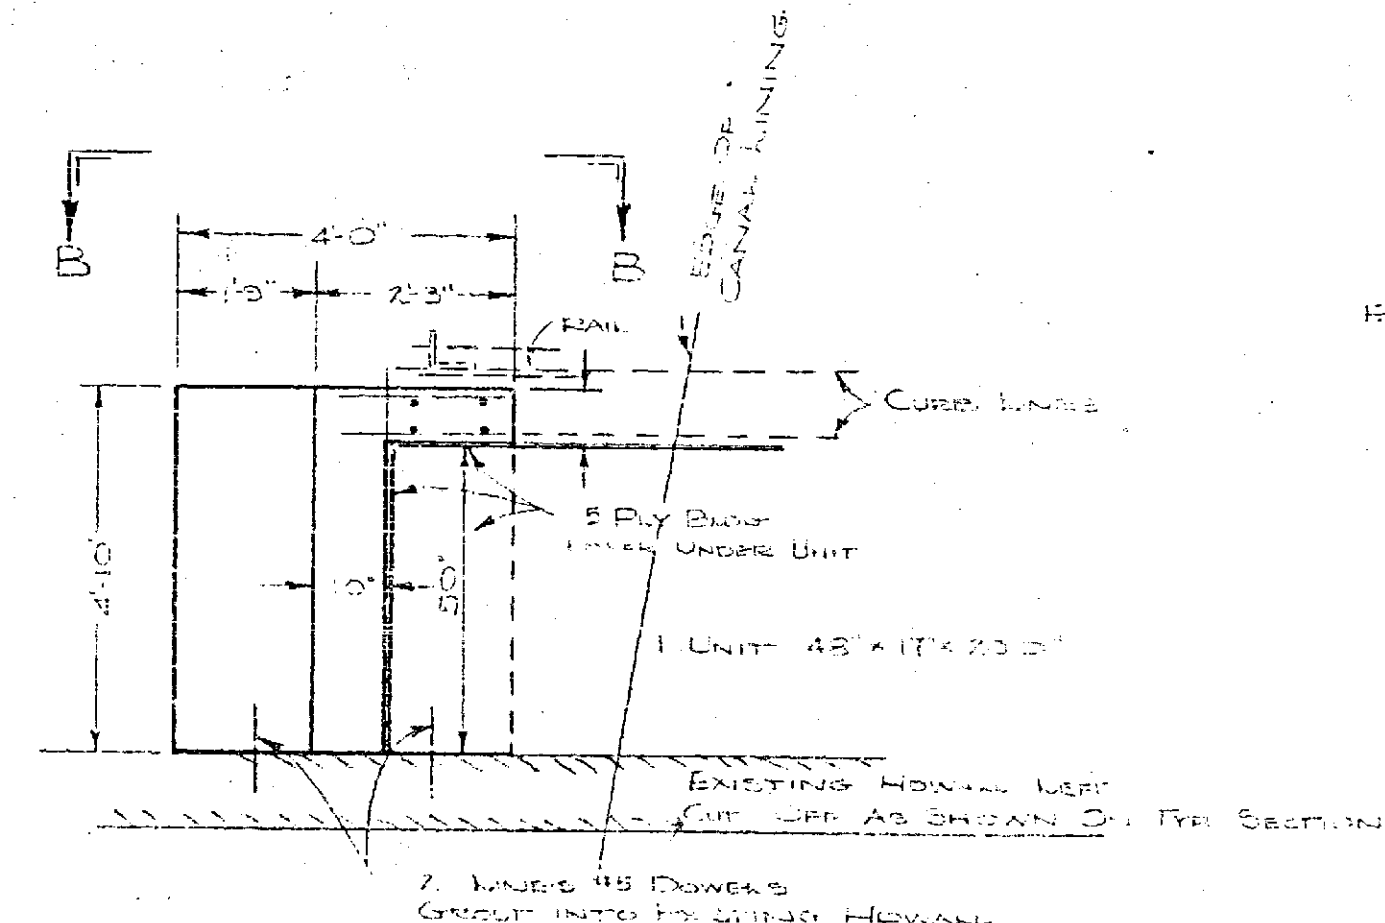 EDGE OF
CANAL LINING
B
B
4'-0"
1'-9"
2'-3"
RAIL
CURB LINES
5 PLY BLDG
UNDER UNIT
4'-10"
10"
50"
1 UNIT 48" x 17" x
EXISTING HDWALL LEFT
CUT OFF AS SHOWN ON TYP. SECTION
2 LINES #5 DOWELS
GROUT INTO EXISTING HDWALL